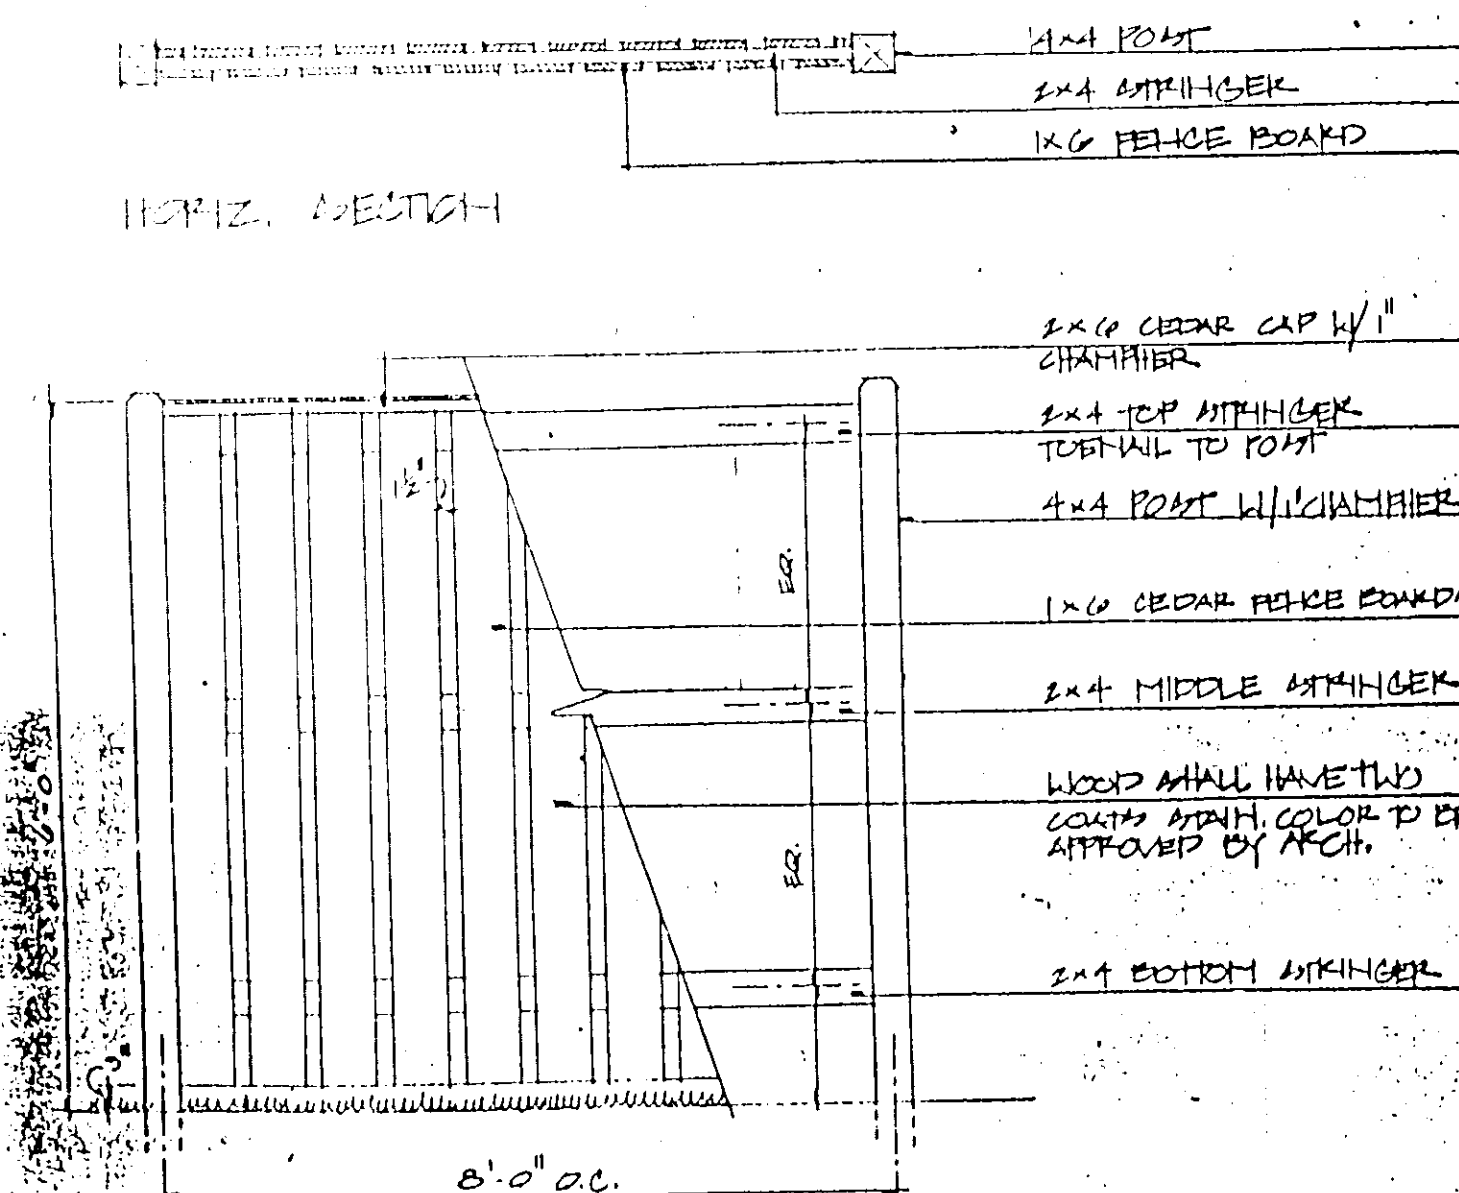 4x4 POST
2x4 STRINGER
1x6 FENCE BOARD
HORIZ. SECTION
2x6 CEDAR CAP W/ 1"
CHAMFER
2x4 TOP STRINGER
TOENAIL TO POST
4x4 POST W/1" CHAMFER
1½"
EQ.
1x6 CEDAR FENCE BOARDS
2x4 MIDDLE STRINGER
6'-0"
WOOD SHALL HAVE TWO
COATS STAIN. COLOR TO BE
APPROVED BY ARCH.
EQ.
2x4 BOTTOM STRINGER
8'-0" O.C.